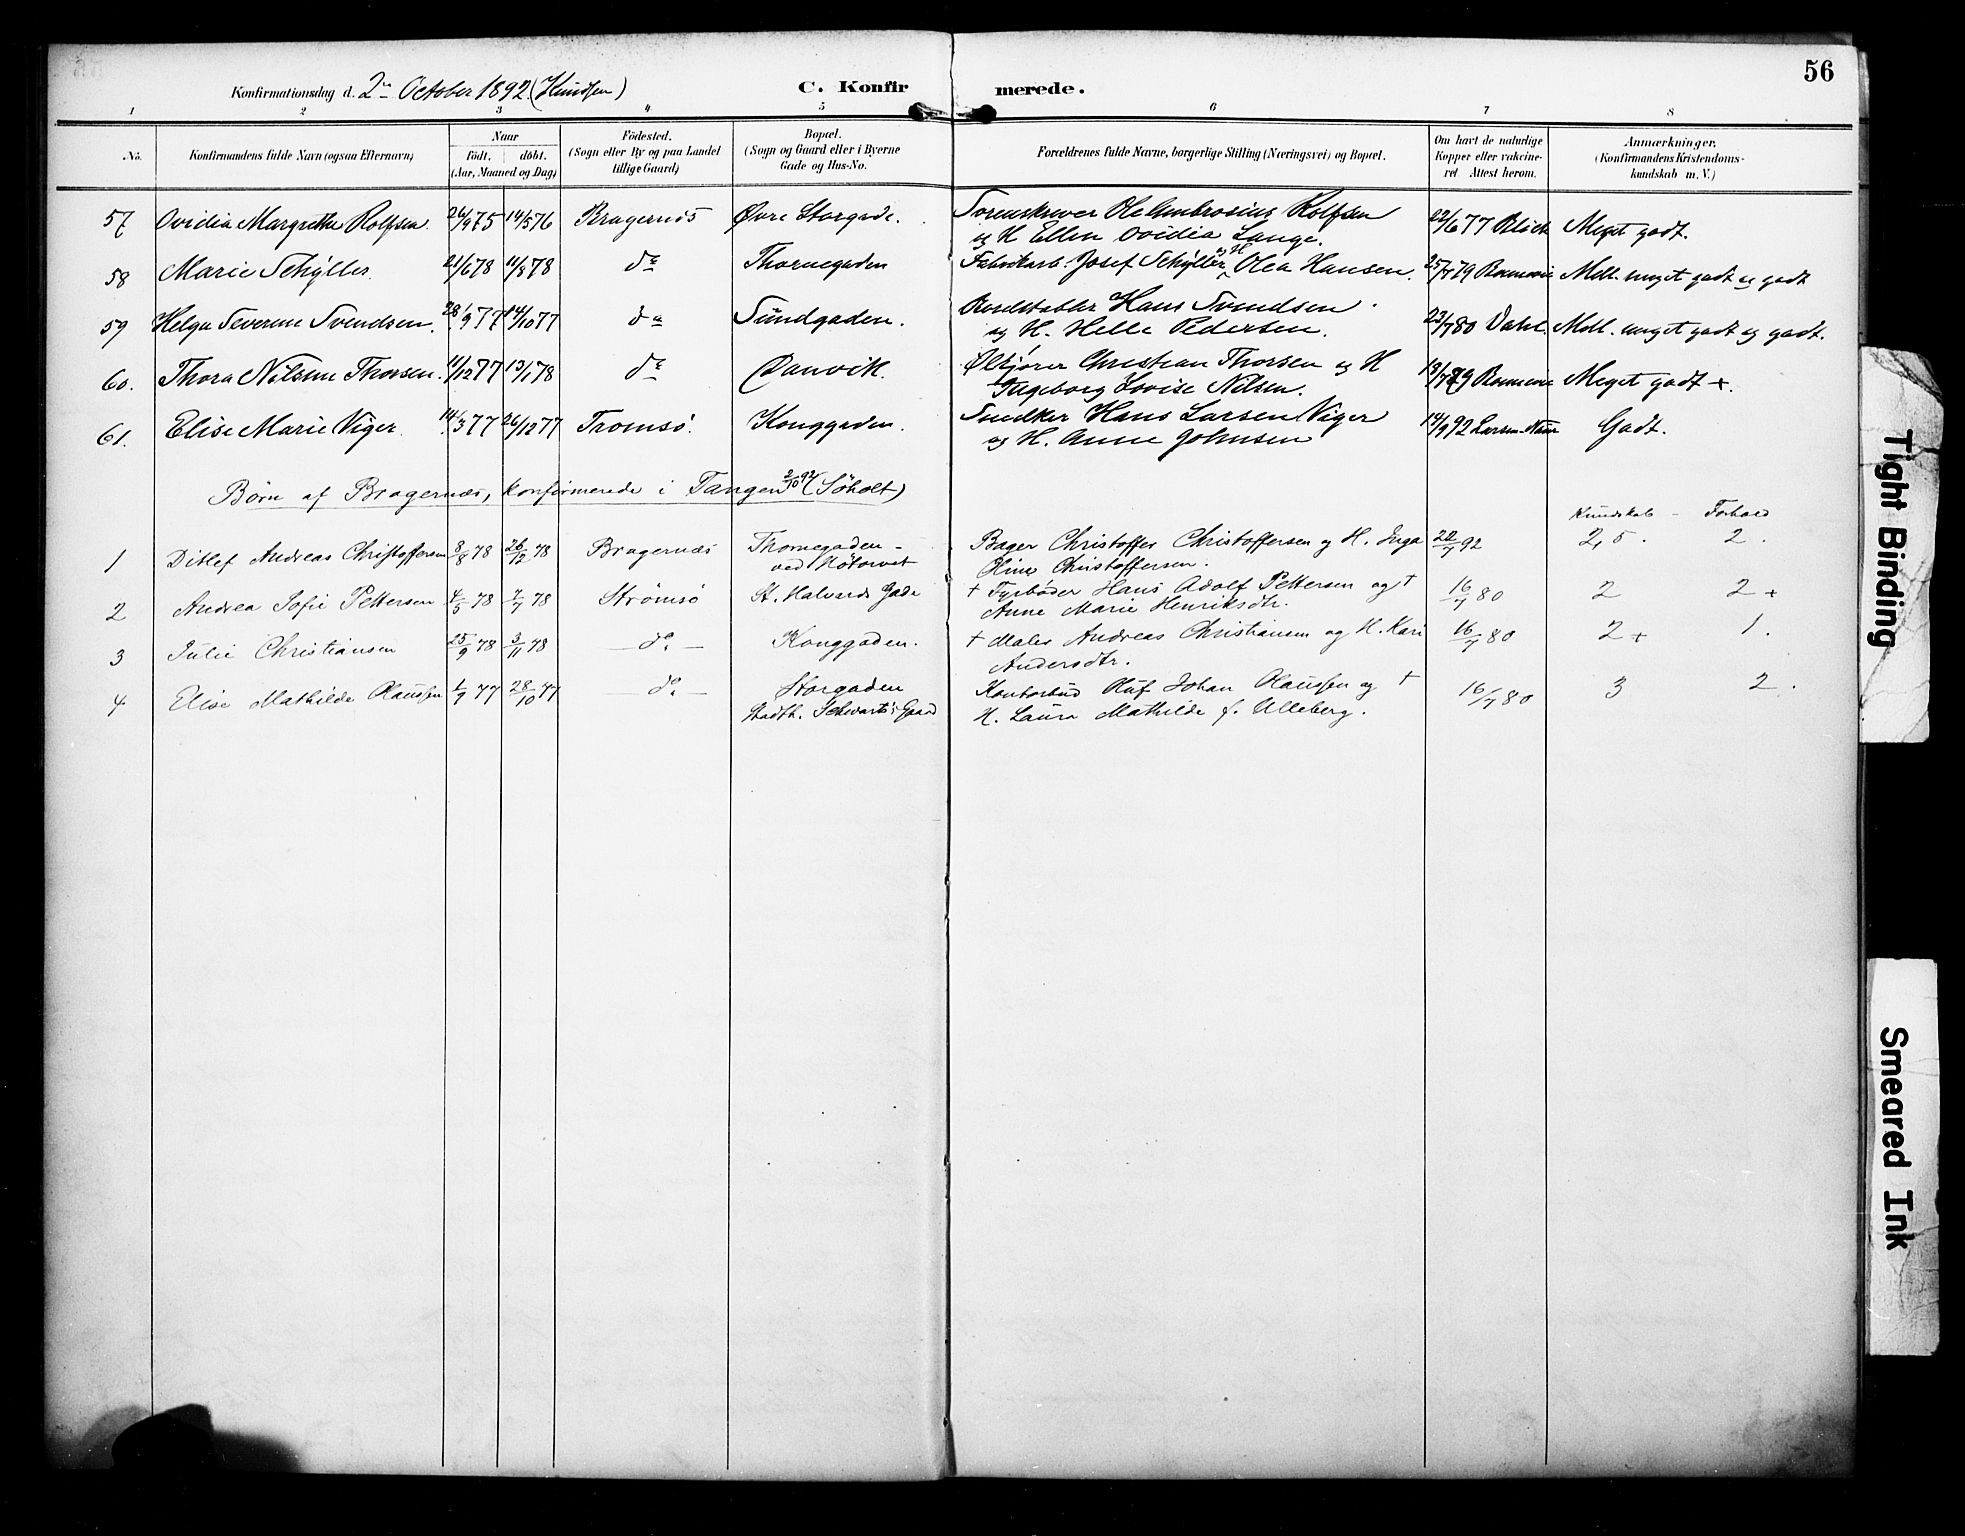 56
Konfirmationsdag d. 2den October 1892. (Knudsen) C. Konfir merede.
1 2 3 4 5 6 7 8
No. Konfirmandens fulde Navn (ogsaa Efternavn) Naar født. døbt. (Aar, Maaned og Dag) Fødested. (Sogn eller By og paa Landet tillige Gaard) Bopæl. (Sogn og Gaard eller i Byerne Gade og Hus-No. Forældrenes fulde Navne, borgerlige Stilling (Næringsvei) og Bopæl. Om havt de naturlige Kopper eller vakcineret Attest herom. Anmærkninger. (Konfirmandens Kristendomskundskab m. V.)
57 Ovidia Margrethe Rolfsen. 26/9 75 14/5 76 Bragernæs Øvre Storgade. Sorenskriver Ole Ambrosius Rolfsen
og H Ellen Ovidia Lange. 22/6 77 Blich Meget godt.
58 Marie Schyller. 21/6 78 11/8 78 do Thornegaden Fabrikarb. Josef Schyller og H Olea Hansen. 25/7 79 Mell. meget godt og godt
59 Helga Severine Svendsen. 28/9 77 14/10 77 do Sundgaden. Bordstabler Hans Svendsen
og H. Helle Pedersen. 23/7 80 Vahl. Mell. meget godt og godt.
60. Thora Nilsine Thorsen. 11/12 77 13/1 78 do Danvik. Ølkjører Christian Thorsen og H
Ingeborg Lovise Nilsen. 18/7 79 Meget godt +.
61. Elise Marie Viger. 14/3 77 26/12 77 Tromsö. Konggaden. Snedker Hans Larsen Viger
og H. Anne Johnsen 14/9 92 Larsen Godt.
Børn af Bragernæs, konfirmerede i Tangen 2/10 92 (Søholt)
Kundskab - Forhold
1 Ditlef Andreas Christoffersen 8/8 78 26/12 78 Bragernæs Thornegaden -
ved Høtorvet Bager Christoffer Christoffersen og H. Inga
Oline Christoffersen. 22/7 92 2,5. 2.
2 Andrea Sofie Pettersen 4/5 78 7/7 78 Strömsö St. Halvards Gade + Fyrbøder Hans Adolf Pettersen og +
Anne Marie Henriksdtr. 16/7 80 2 2+
3 Julie Christiansen 25/9 78 3/11 78 — do — Konggaden. + Maler Andreas Christiansen og H. Kari
Andersdtr. 16/7 80 2+ 1.
4 Elise Mathilde Olaussen 1/9 77 28/10 77 — do — Storgaden
Stadth. Schwartz's Gaard Kontorbud Oluf Johan Olaussen og +
H. Laura Mathilde f. Ulleberg. 16/7 80 3 2.
Tight Binding
Smeared Ink